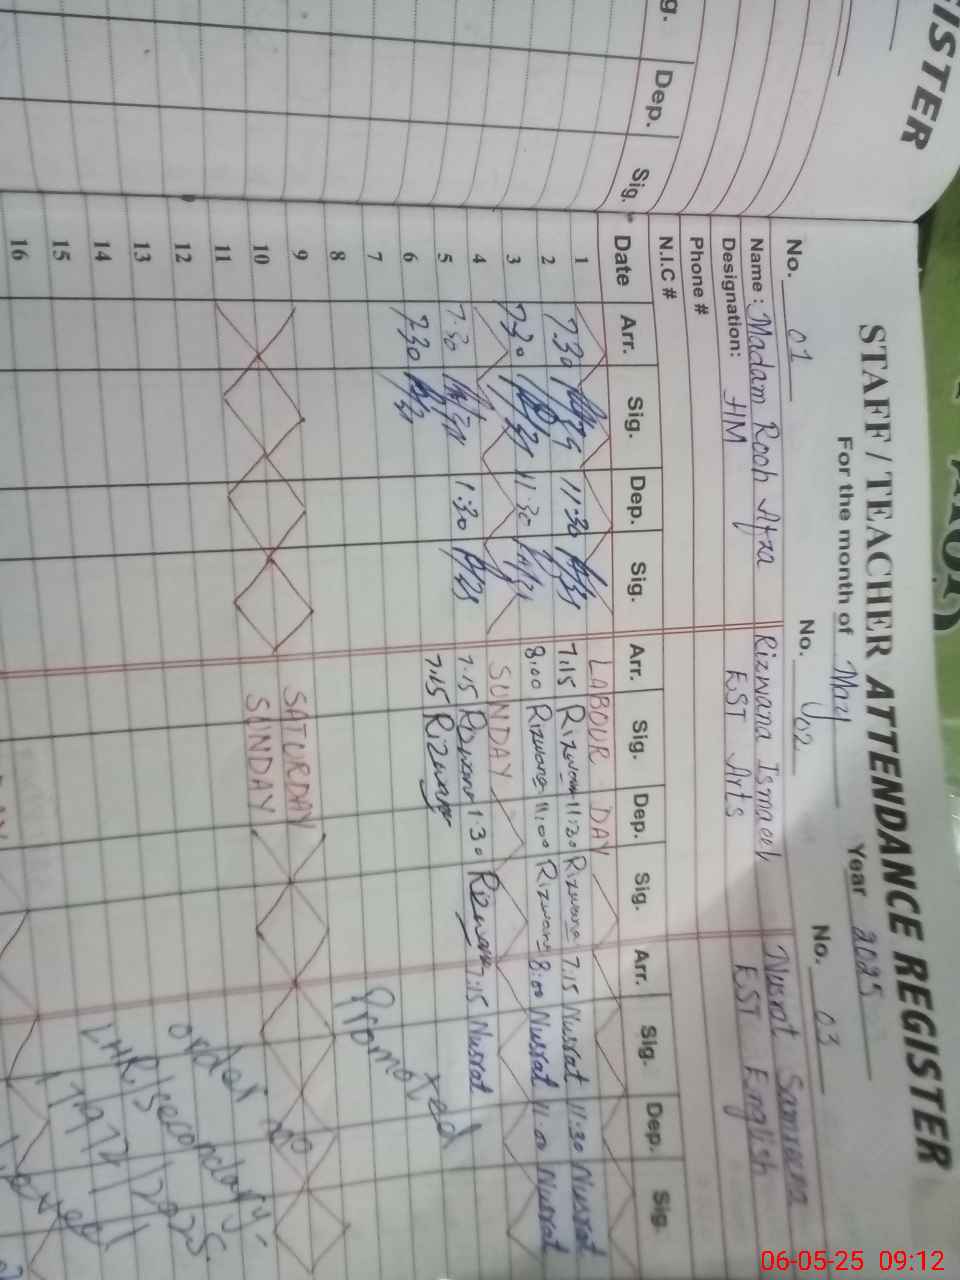 GISTER
g. Dep. Sig.
STAFF / TEACHER ATTENDANCE REGISTER
For the month of May Year 2025
No. 01 No. 02 No. 03
Name : Madam Rooh Afza Rizwana Ismaeel Nusrat Sameera
Designation: HM EST Arts EST English
Phone #
N.I.C #
Date Arr. Sig. Dep. Sig. Arr. Sig. Dep. Sig. Arr. Sig. Dep. Sig.
1 LABOUR DAY
2 7.30 11:30 7.15 Rizwana 11:30 Rizwana 7.15 Nusrat 11:30 Nusrat
3 7.30 11:30 8:00 Rizwana 11:00 Rizwana 8:00 Nusrat 11:00 Nusrat
4 SUNDAY
5 7.30 1:30 7.15 Rizwana 1:30 Rizwana 7:15 Nusrat
6 7.30 7.15 Rizwana
7 Promoted
8
9 SATURDAY
10 SUNDAY
11 order no
12 LHR/Secondary,
13
14
15
16
06-05-25 09:12